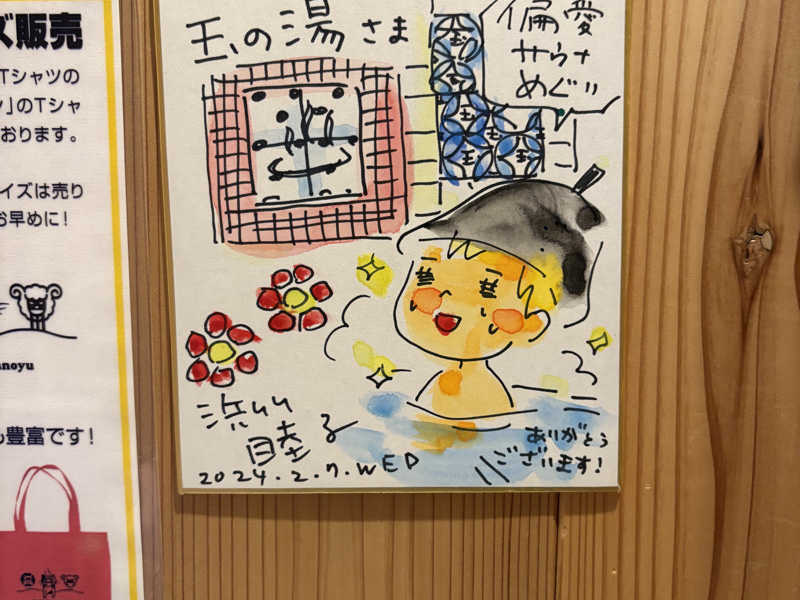 ズ販売
Tシャツの
ン」のTシャ
おります。
イズは売り
お早めに!
anoyu
も豊富です!
玉の湯さま
偏愛
サウナ
めぐり
2024.2.7.WED
ありがとう
ございます!